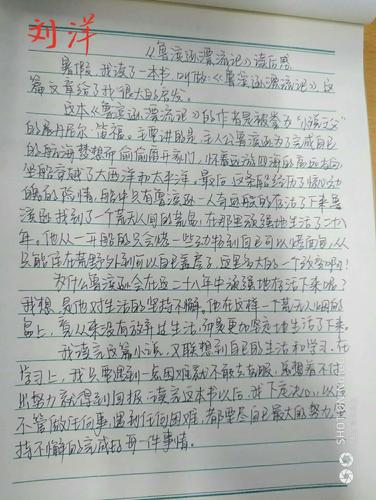 刘洋
《鲁滨逊漂流记》读后感
暑假，我读了一本书，叫做《鲁滨逊漂流记》，这
篇文章给了我很大的启发。
这本《鲁滨逊漂流记》的作者是被誉为"小说之父"
的丹尼尔·笛福。主要讲的是：主人公鲁滨逊为了完成自己
的航海梦想而偷偷离开家门，怀着远游四海的高远志向
坐船穿越了大西洋和太平洋。最后，这条船经历了惊心动
魄的险情，船中只有鲁滨逊一人奇迹般的存活了下来。鲁
滨逊找到了一个荒无人间的荒岛，在那里顽强地生活了二十八
年。他从一开始的只会烧一些动物到自己可以烤面包，从
只能住在荒野外到可以自己盖房子，这是多大的一个改变啊！
为什么鲁滨逊会在这二十八年中顽强地存活下来呢？
我想，是他对生活的坚持不懈。他在这样一个荒无人烟的
岛上，看从来没有放弃过生活，而是更加坚定地生活了下来。
我读完这篇小说，又联想到自己的生活和学习，在
学习上，我只要遇到一点困难就不敢去克服，总想着不付
出努力就得到回报。读完这本书以后，我下定决心，以后
不管做任何事，遇到任何困难，都要尽自己最大的努力坚
持不懈的完成好每一件事情。
SHOT ON